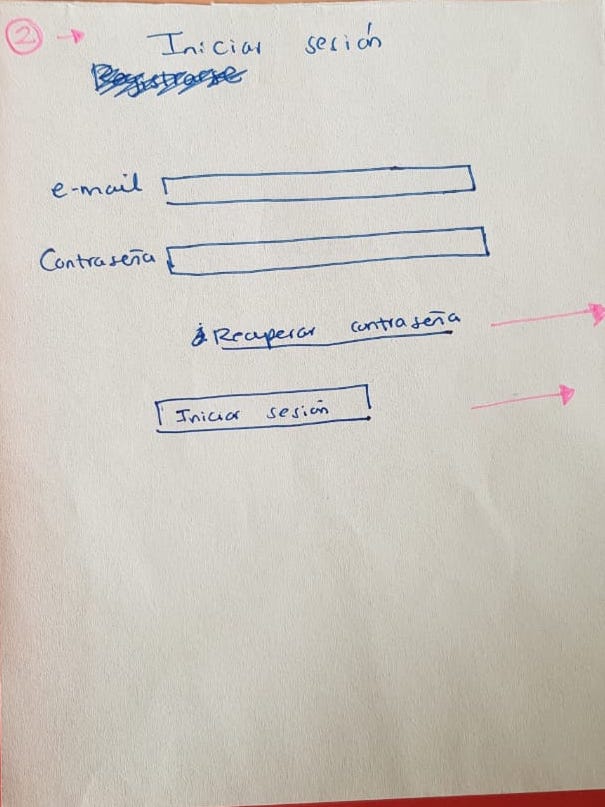 2 → Iniciar sesión
Registrarse
e-mail
Contraseña
¿Recuperar contraseña
Iniciar sesión